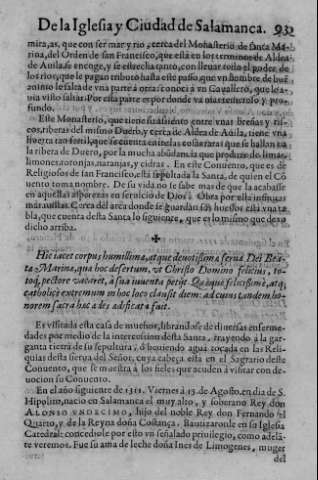 De la Iglesia y Ciudad de Salamanca. 932
mira, as, que con ser mar y rio, cerca del Monasterio de santa Ma-
rina, del Orden de san Francisco, que està en los terminos de Aldea
de Auila, se encoge, y se estrecha tanto, con lleuar todo el poder de
los rios, que le pagan tributo hasta este paso, que vn hombre de buẽ
animo le salta de vna parte à otra: conoci à vn Cauallero, que lo a-
uia visto saltar. Por esta parte es por donde va mas estrecho y pro-
fundo.
Este Monasterio, que tiene su assiento entre vnas breñas y ris-
cos, riberas del mismo Duero, y cerca de Aldea de Auila, tiene vna
huerta tan fertil, que se cuenta entre las cosas raras que se hallan en
la ribera de Duero, por la mucha abũdancia que produze de limas,
limones, toronjas, naranjas, y cidras. En este Conuento, que es de
Religiosos de san Francisco, està sepultada la Santa, de quien el Cõ
uento toma nombre. De su vida no se sabe mas de que la acabasse
en aquellas asperezas en seruicio de Dios. Obra por esta
marauillas. Cerca del arca donde se guardan sus huessos està vna ta-
bla, que cuenta desta Santa lo siguiente, que es lo mismo que dexo
dicho arriba.
✠
Hic iacet corpus humillima, atque deuotissima serua Dei Bea-
ta Marina, qua hoc desertum, vt Christo Domino felicius, to-
toq; pectore vacaret, à sua iuuenta petijt. Quaque felicissimè, atq;
catholicè extremum in hoc loco clausit diem: ad cuius tandem ho-
norem sacra hac ades adificata fuit.
Es visitada esta casa de muchos, librandose de diuersas enferme-
dades por medio de la intercession desta Santa, trayendo à la gar-
ganta tierra de su sepultura; ò bouiendo agua tocada en las Reli-
quias desta sierua del Señor, cuya cabeça està en el Sagrario deste
Conuento, que se muestra à los fieles que acuden à visitar con de-
uocion su Conuento.
En el año siguiente de 1311. Viernes à 13. de Agosto, en dia de S.
Hippolito, nacio en Salamanca el muy alto, y soberano Rey don
ALONSO VNDECIMO, hijo del noble Rey don Fernando el
Quarto, y de la Reyna doña Costança. Bautizaronle en su Iglesia
Catedral: concediole por esto vn señalado priuilegio, como adelã-
te veremos. Fue su ama de leche doña Ines de Limogenes, muger
del